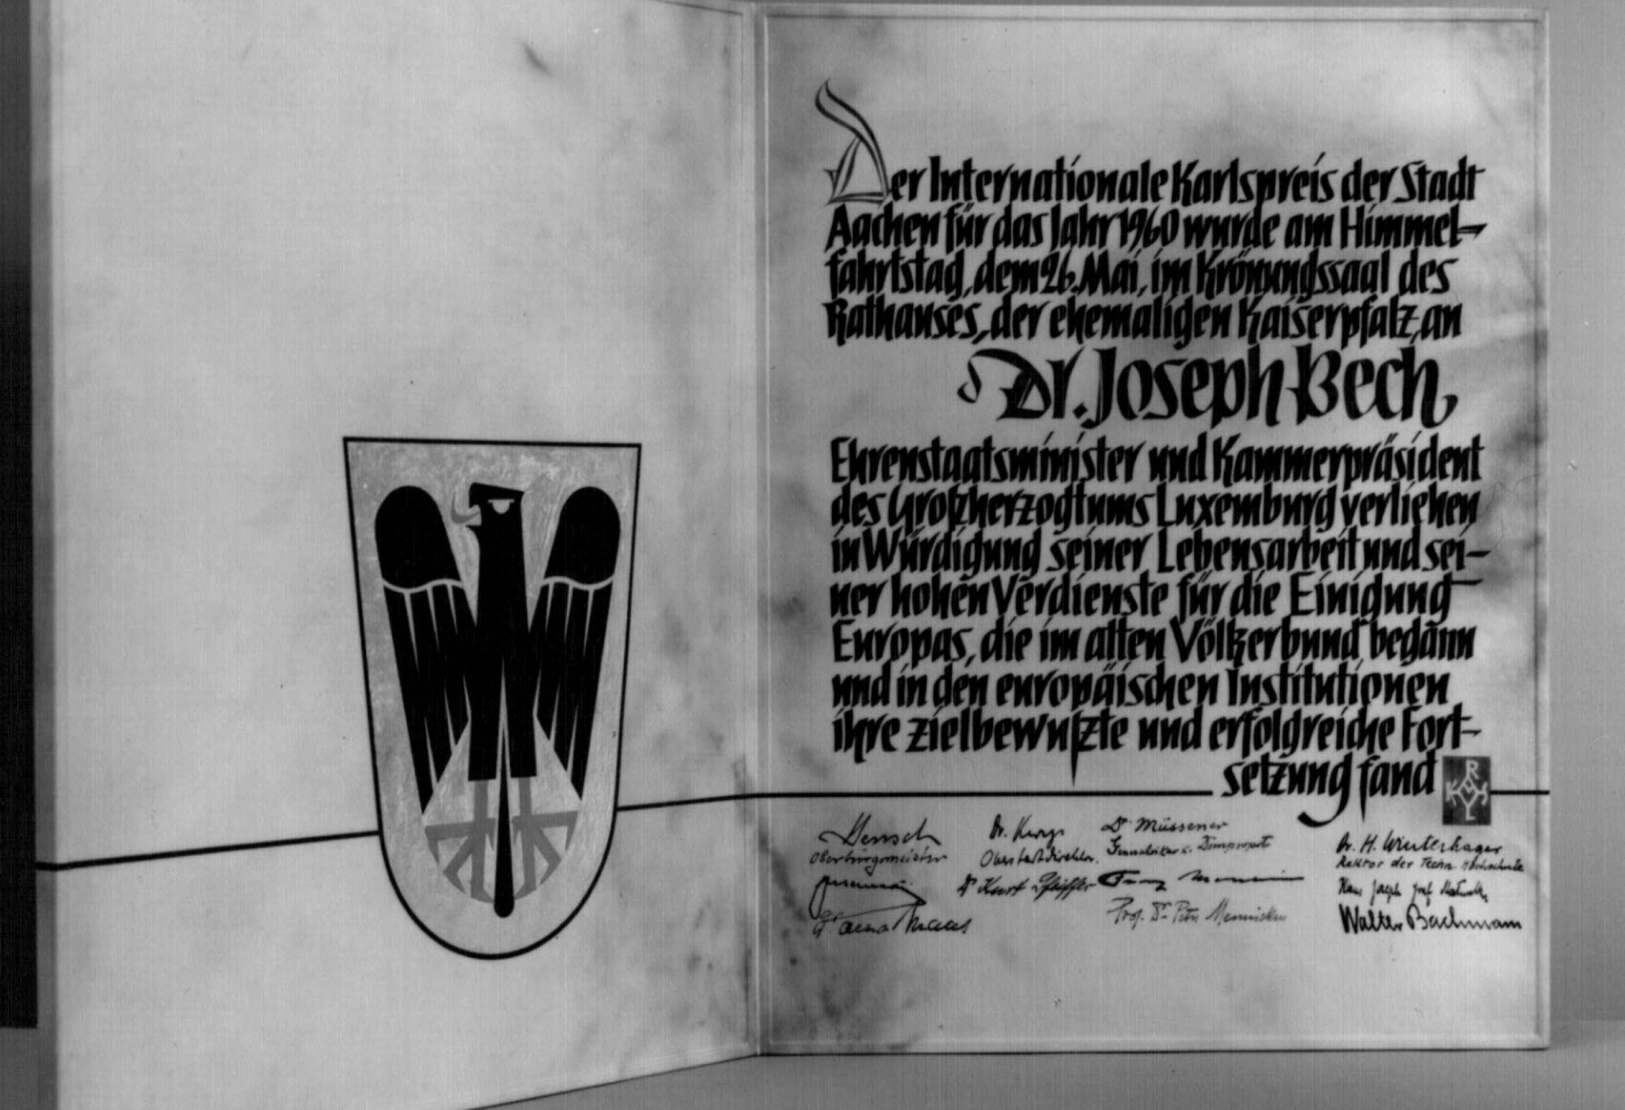 Der Internationale Karlspreis der Stadt
Aachen für das Jahr 1960 wurde am Himmel-
fahrtstag, dem 26. Mai, im Krönungssaal des
Rathauses, der ehemaligen Kaiserpfalz, an
Dr. Joseph Bech
Ehrenstaatsminister und Kammerpräsident
des Großherzogtums Luxemburg verliehen
in Würdigung seiner Lebensarbeit und sei-
ner hohen Verdienste für die Einigung
Europas, die im alten Völkerbund begann
und in den europäischen Institutionen
ihre zielbewußte und erfolgreiche Fort-
setzung fand
KAROLVS
Dr. Müssener
Oberbürgermeister
Oberstadtdirektor.
Dr. Kurt Pfeiffer
Prof. Dr. Peter Mennicken
Dr. H. Winterhager
Rektor der Techn. Hochschule
Walter Bachmann